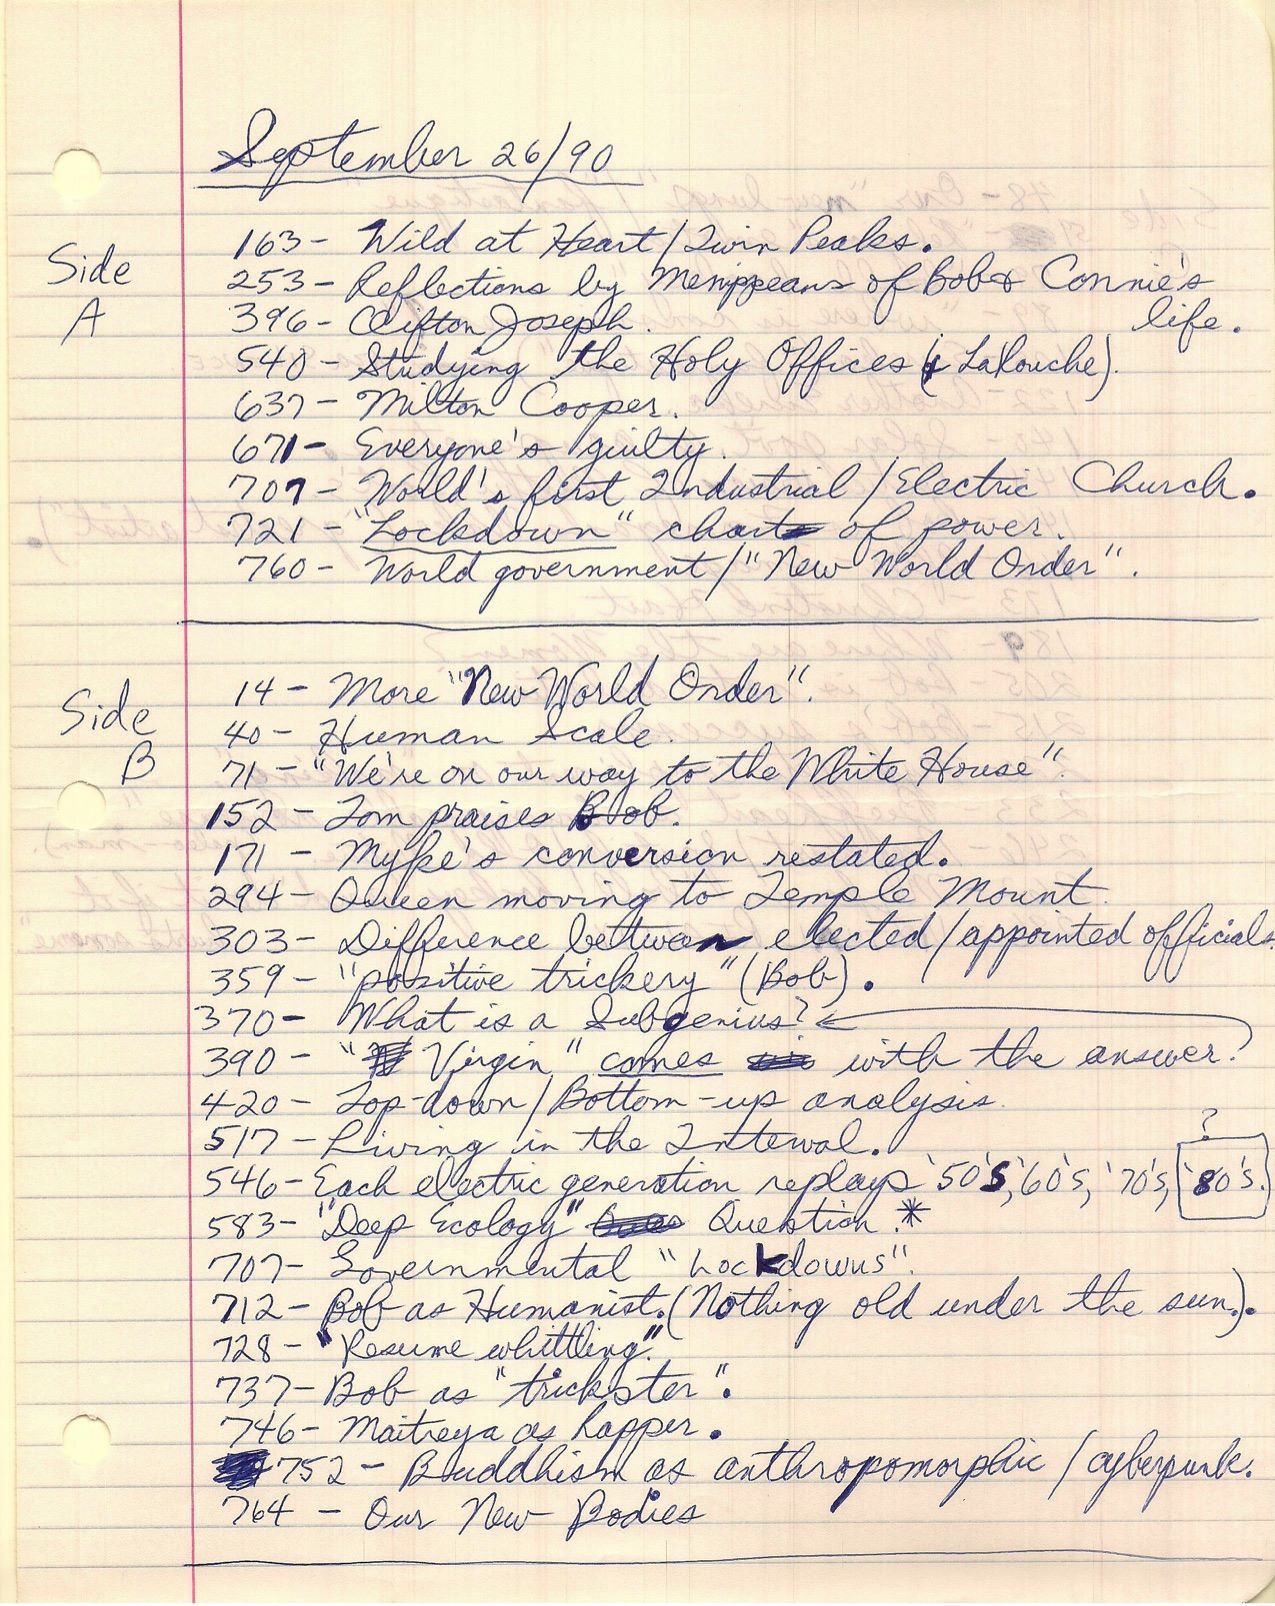 September 26/90
Side A
163 - Wild at Heart / Twin Peaks.
253 - Reflections by Menippeans of Bob & Connie's life.
396 - Clifton Joseph.
540 - Studying the Holy Offices (& LaRouche).
637 - Milton Cooper.
671 - Everyone's guilty.
707 - World's first Industrial / Electric Church.
721 - "Lockdown" chart of power.
760 - World government / "New World Order".
Side B
14 - More "New World Order".
40 - Human Scale.
71 - "We're on our way to the White House".
152 - Tom praises Bob.
171 - Myke's conversion restated.
294 - Queen moving to Temple Mount.
303 - Difference between elected / appointed officials.
359 - "positive trickery" (Bob).
370 - What is a Subgenius?
390 - "Virgin" comes with the answer?
420 - Top-down / Bottom-up analysis.
517 - Living in the Interval.
546 - Each electric generation replays '50's, '60's, '70's, '80's. ?
583 - "Deep Ecology" Question.*
707 - Governmental "Lockdowns".
712 - Bob as Humanist. (Nothing old under the sun.).
728 - "Resume whittling."
737 - Bob as "trickster".
746 - Maitreya as rapper.
752 - Buddhism as anthropomorphic / cyberpunk.
764 - Our New Bodies